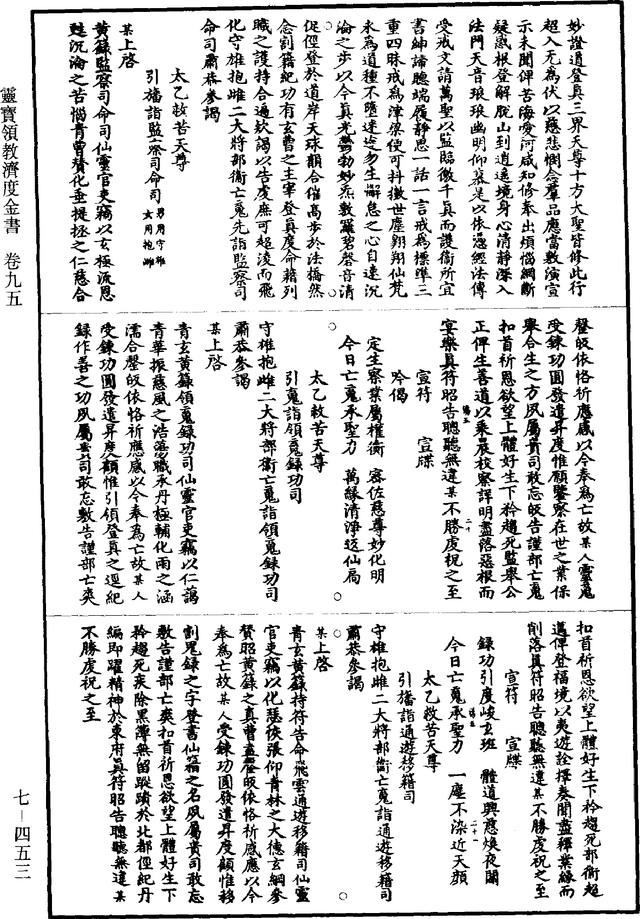 妙證道登真三界天尊十方大聖皆修此行
超入无為伏以慈悲愍念羣品應當敷演宣
示未聞俾苦海愛河咸知修奉出煩惱網斷
疑惑根登解脫山到逍遙境身心清靜深入
法門天音琅琅幽明仰慕是以依憑經法傳
受戒文請萬聖以監臨徹千真而護衛所宜
書紳諦聽端履靜思一話一言戒為標準三
重四昧戒為津梁使可抖擻世塵翱翔仙梵
永為道種不墮迷途勿生懈怠之心自速沉
淪之步以今真光鬱勃妙炁敷羅碧磬音清
促俓登於道岸天球韻合催高步於法橋然
念割籍紀功有玄曹之主宰登真度命藉列
職之護持合遍款謁以告虔庶可超淩而飛
化守雄抱雌二大將部衛亡䰟先詣監察司
命司肅恭參謁
太乙救苦天尊
引旛詣監察司命司 男用守雄 女用抱雌
某上啓
黃籙監察司命司仙靈官吏竊以玄極流恩
甦沉淪之苦惱青曹贊化垂提拯之仁慈合
罄皈依恪祈應感以今奉為亡故某人靈䰟
受鍊功圓發遣昇度惟願鑒察在世之業保
舉合生之方夙屬貴司敢忘皈告謹部亡䰟
扣首祈恩欲望上體好生下矜趨死監舉公
正俾生善道以乘晨校察詳明盡落惡根而
宴樂真符昭告聰聽無違某不勝虔祝之至
宣符 宣牒
吟偈
定生察業屬權衡 密佐慈尊妙化明
今日亡䰟承聖力 萬緣清淨返仙扃
太乙救苦天尊
引䰟詣領䰟錄功司
守雄抱雌二大將部衛亡䰟詣領䰟錄功司
肅恭參謁
某上啓
青玄黃籙領䰟錄功司仙靈官吏竊以仁藹
青華振慈風之浩蕩職承丹極輔化雨之涵
濡合罄皈依恪祈應感以今奉為亡故某人
受鍊功圓發遣昇度願惟引領登真之逕紀
錄作善之功夙屬貴司敢忘敷告謹部亡爽
扣首祈恩欲望上體好生下矜趨死部衛超
遷俾登福境以夷遊詮擇奏聞盡釋業緣而
削落真符昭告聰聽無違某不勝虔祝之至
宣符 宣牒
錄功引度峻玄班 體道興慈煥夜關
今日亡䰟承聖力 一塵不染近天顔
太乙救苦天尊
引旛詣通遊移籍司
守雄抱雌二大將部衛亡䰟詣通遊移籍司
肅恭參謁
某上啓
青玄黃籙持符告命飛雲通遊移籍司仙靈
官吏竊以化瑟徐張仰青林之大德玄綱參
贊昭黃籙之真曹盍罄皈依恪祈感應以今
奉為亡故某人受鍊功圓發遣昇度願惟移
割鬼錄之字登書仙籍之名夙屬貴司敢忘
敷告謹部亡爽扣首祈恩欲望上體好生下
矜趨死疾除黑簿無留蹤蹟於北都俓紀丹
編即躍精神於東府真符昭告聰聽無違某
不勝虔祝之至
靈寶領教濟度金書 卷九五
七－四五三